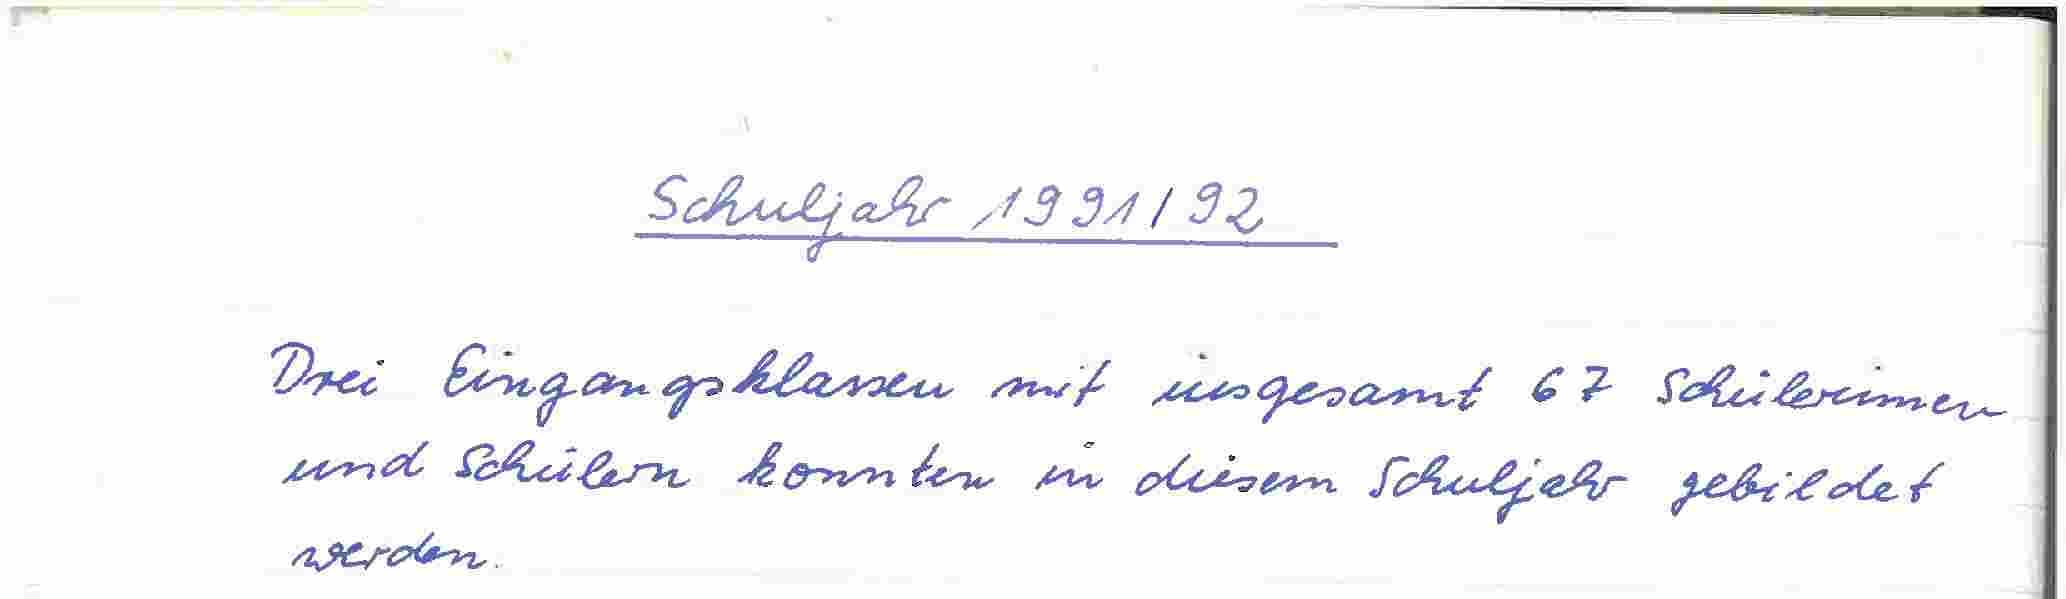 Schuljahr 1991/92
Drei Eingangsklassen mit insgesamt 67 Schülerinnen
und Schülern konnten in diesem Schuljahr gebildet
werden.